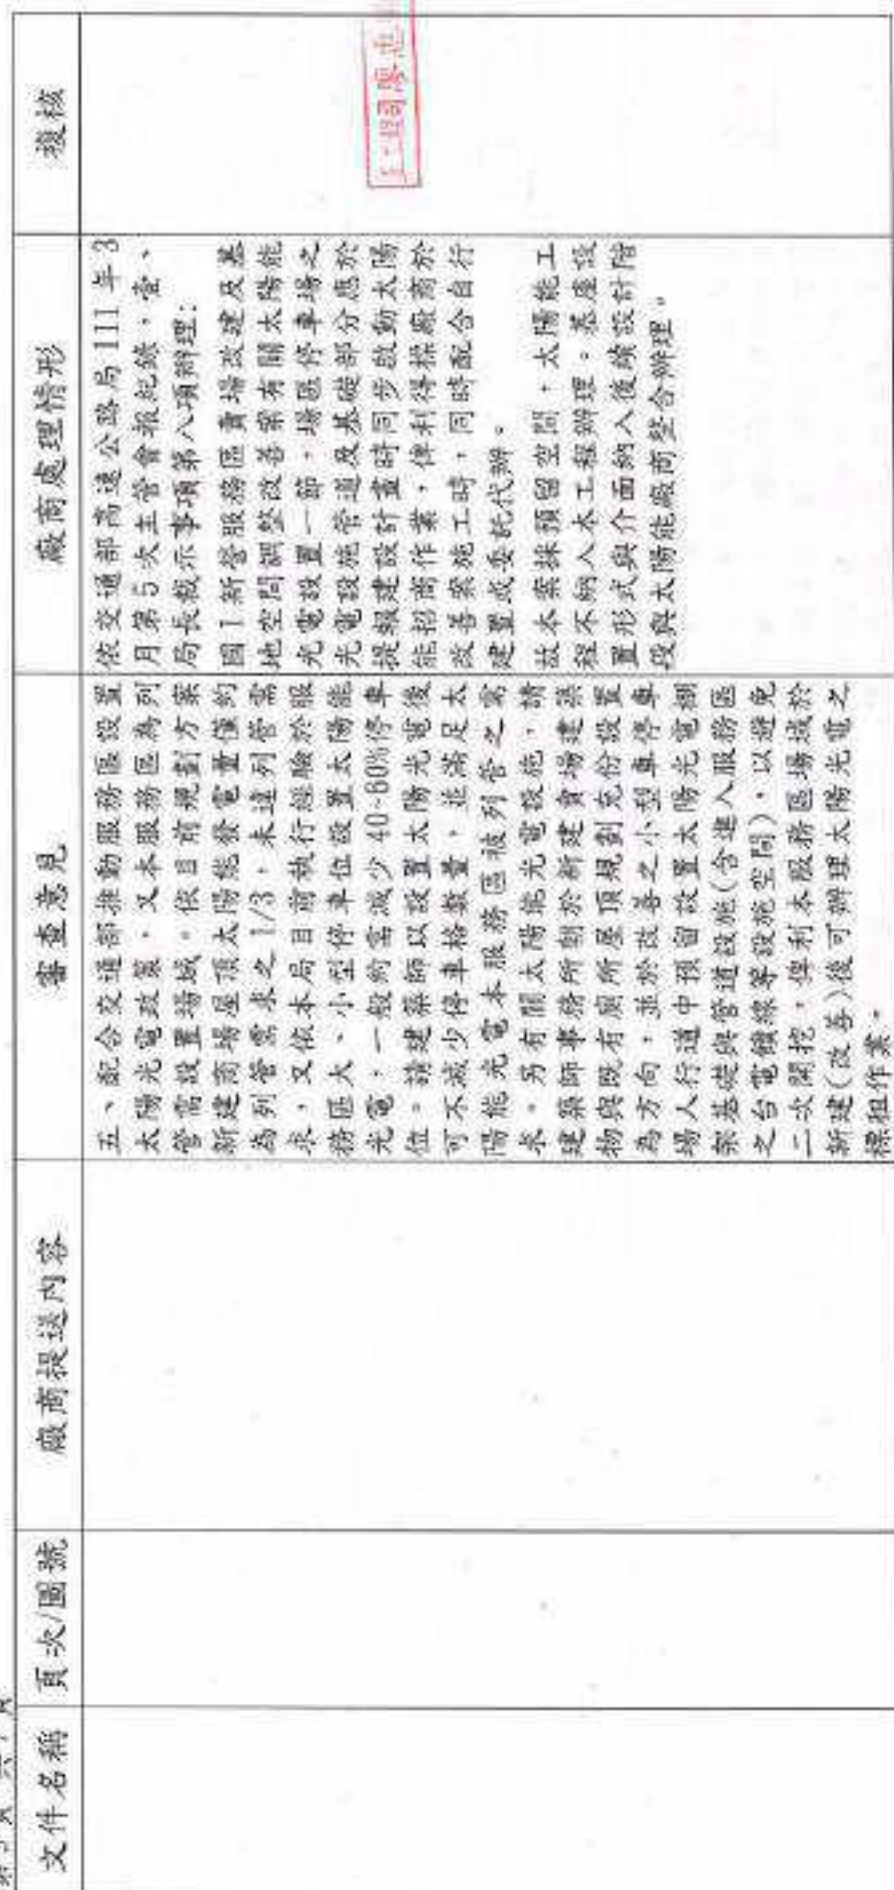 文件名稱
頁次/圖號
廠商提送內容
審查意見
廠商處理情形
複核
五、配合交通部推動服務區設置
太陽光電政策，又本服務區為列
管需設置場域。依目前規劃方案
新建商場屋頂太陽能發電量僅約
為列管需求之 1/3，未達列管需
求，又依本局目前執行經驗於服
務區大、小型停車位設置太陽能
光電，一般約需減少 40-60%停車
位。請建築師以設置太陽光電後
可不減少停車格數量，並滿足太
陽能光電本服務區被列管之需
求。另有關太陽能光電設施，請
建築師事務所朝於新建賣場建築
物與既有廁所屋頂規劃充份設置
為方向，並於改善之小型車停車
場人行道中預留設置太陽光電棚
架基礎與管道設施(含進入服務區
之台電饋線等設施空間)，以避免
二次開挖，俾利本服務區場域於
新建(改善)後可辦理太陽光電之
標租作業。
依交通部高速公路局 111 年 3
月第 5 次主管會報紀錄，壹、
局長裁示事項第八項辦理:
國 1 新營服務區賣場改建及基
地空間調整改善案有關太陽能
光電設置一節，場區停車場之
光電設施管道及基礎部分應於
提報建設計畫時同步啟動太陽
能招商作業，俾利得標廠商於
改善案施工時，同時配合自行
建置或委託代辦。
故本案採預留空間，太陽能工
程不納入本工程辦理。基座設
置形式與介面納入後續設計階
段與太陽能廠商整合辦理。